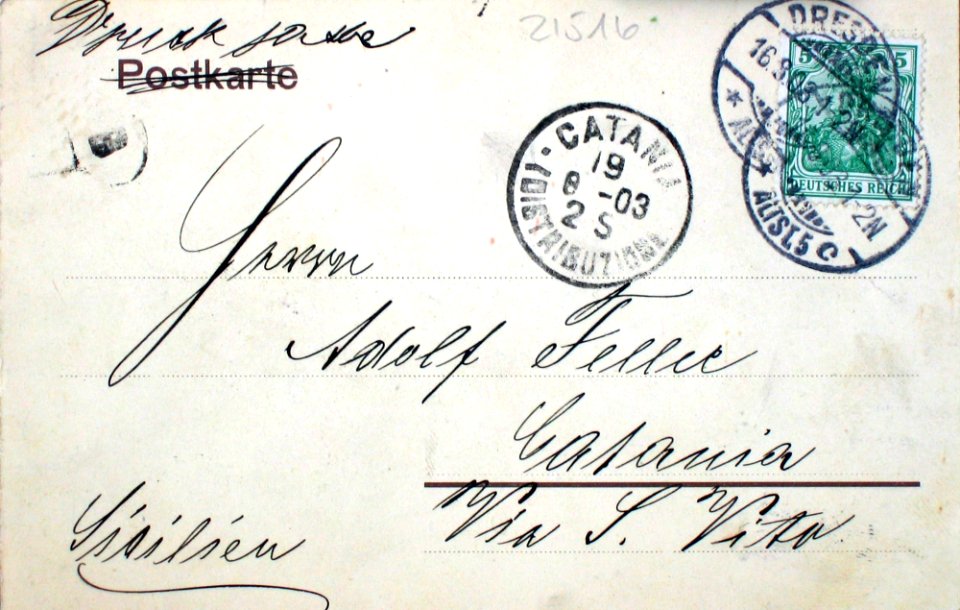 Drucksache
21516
Postkarte
DRESDEN
16.8.
1-2N
ALTST.5 c
5 5
DEUTSCHES REICH
CATANIA
19
8 -03
2 S
(DISTRIBUZIONE)
Herrn
Adolf Feller
Catania
Via S. Vito.
Sicilien